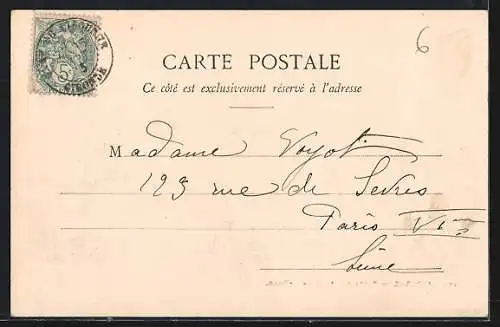 6
5c
GIRONDE
CARTE POSTALE
Ce côté est exclusivement réservé à l'adresse
Madame Voyot
123 rue de Sèvres
Paris VIme
Seine